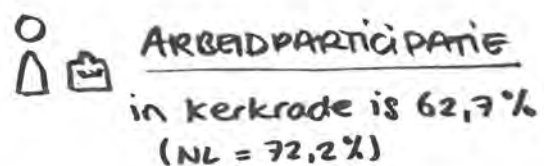 ARBEIDPARTICIPATIE
in kerkrade is 62,7%
(NL = 72,2%)